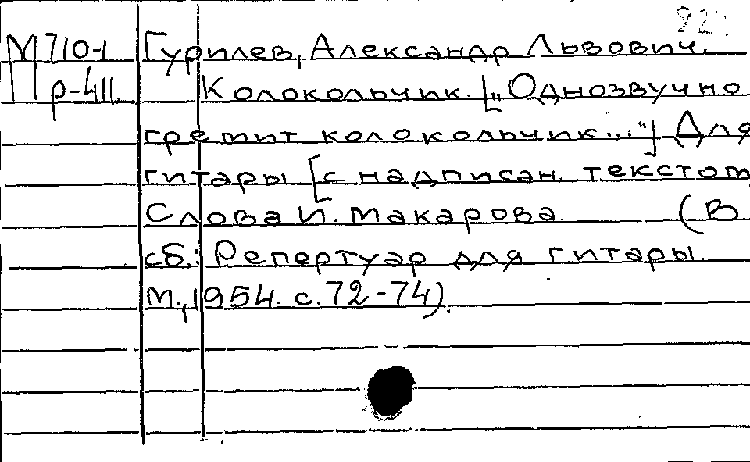 92
М710-1 Гурилев, Александр Львович.
Пр-411. Колокольчик. [„Однозвучно
гремит колокольчик..."] Для
гитары [с надписан. текстом
Слова И. Макарова (В
сб.: Репертуар для гитары.
М., 1954. с. 72-74).